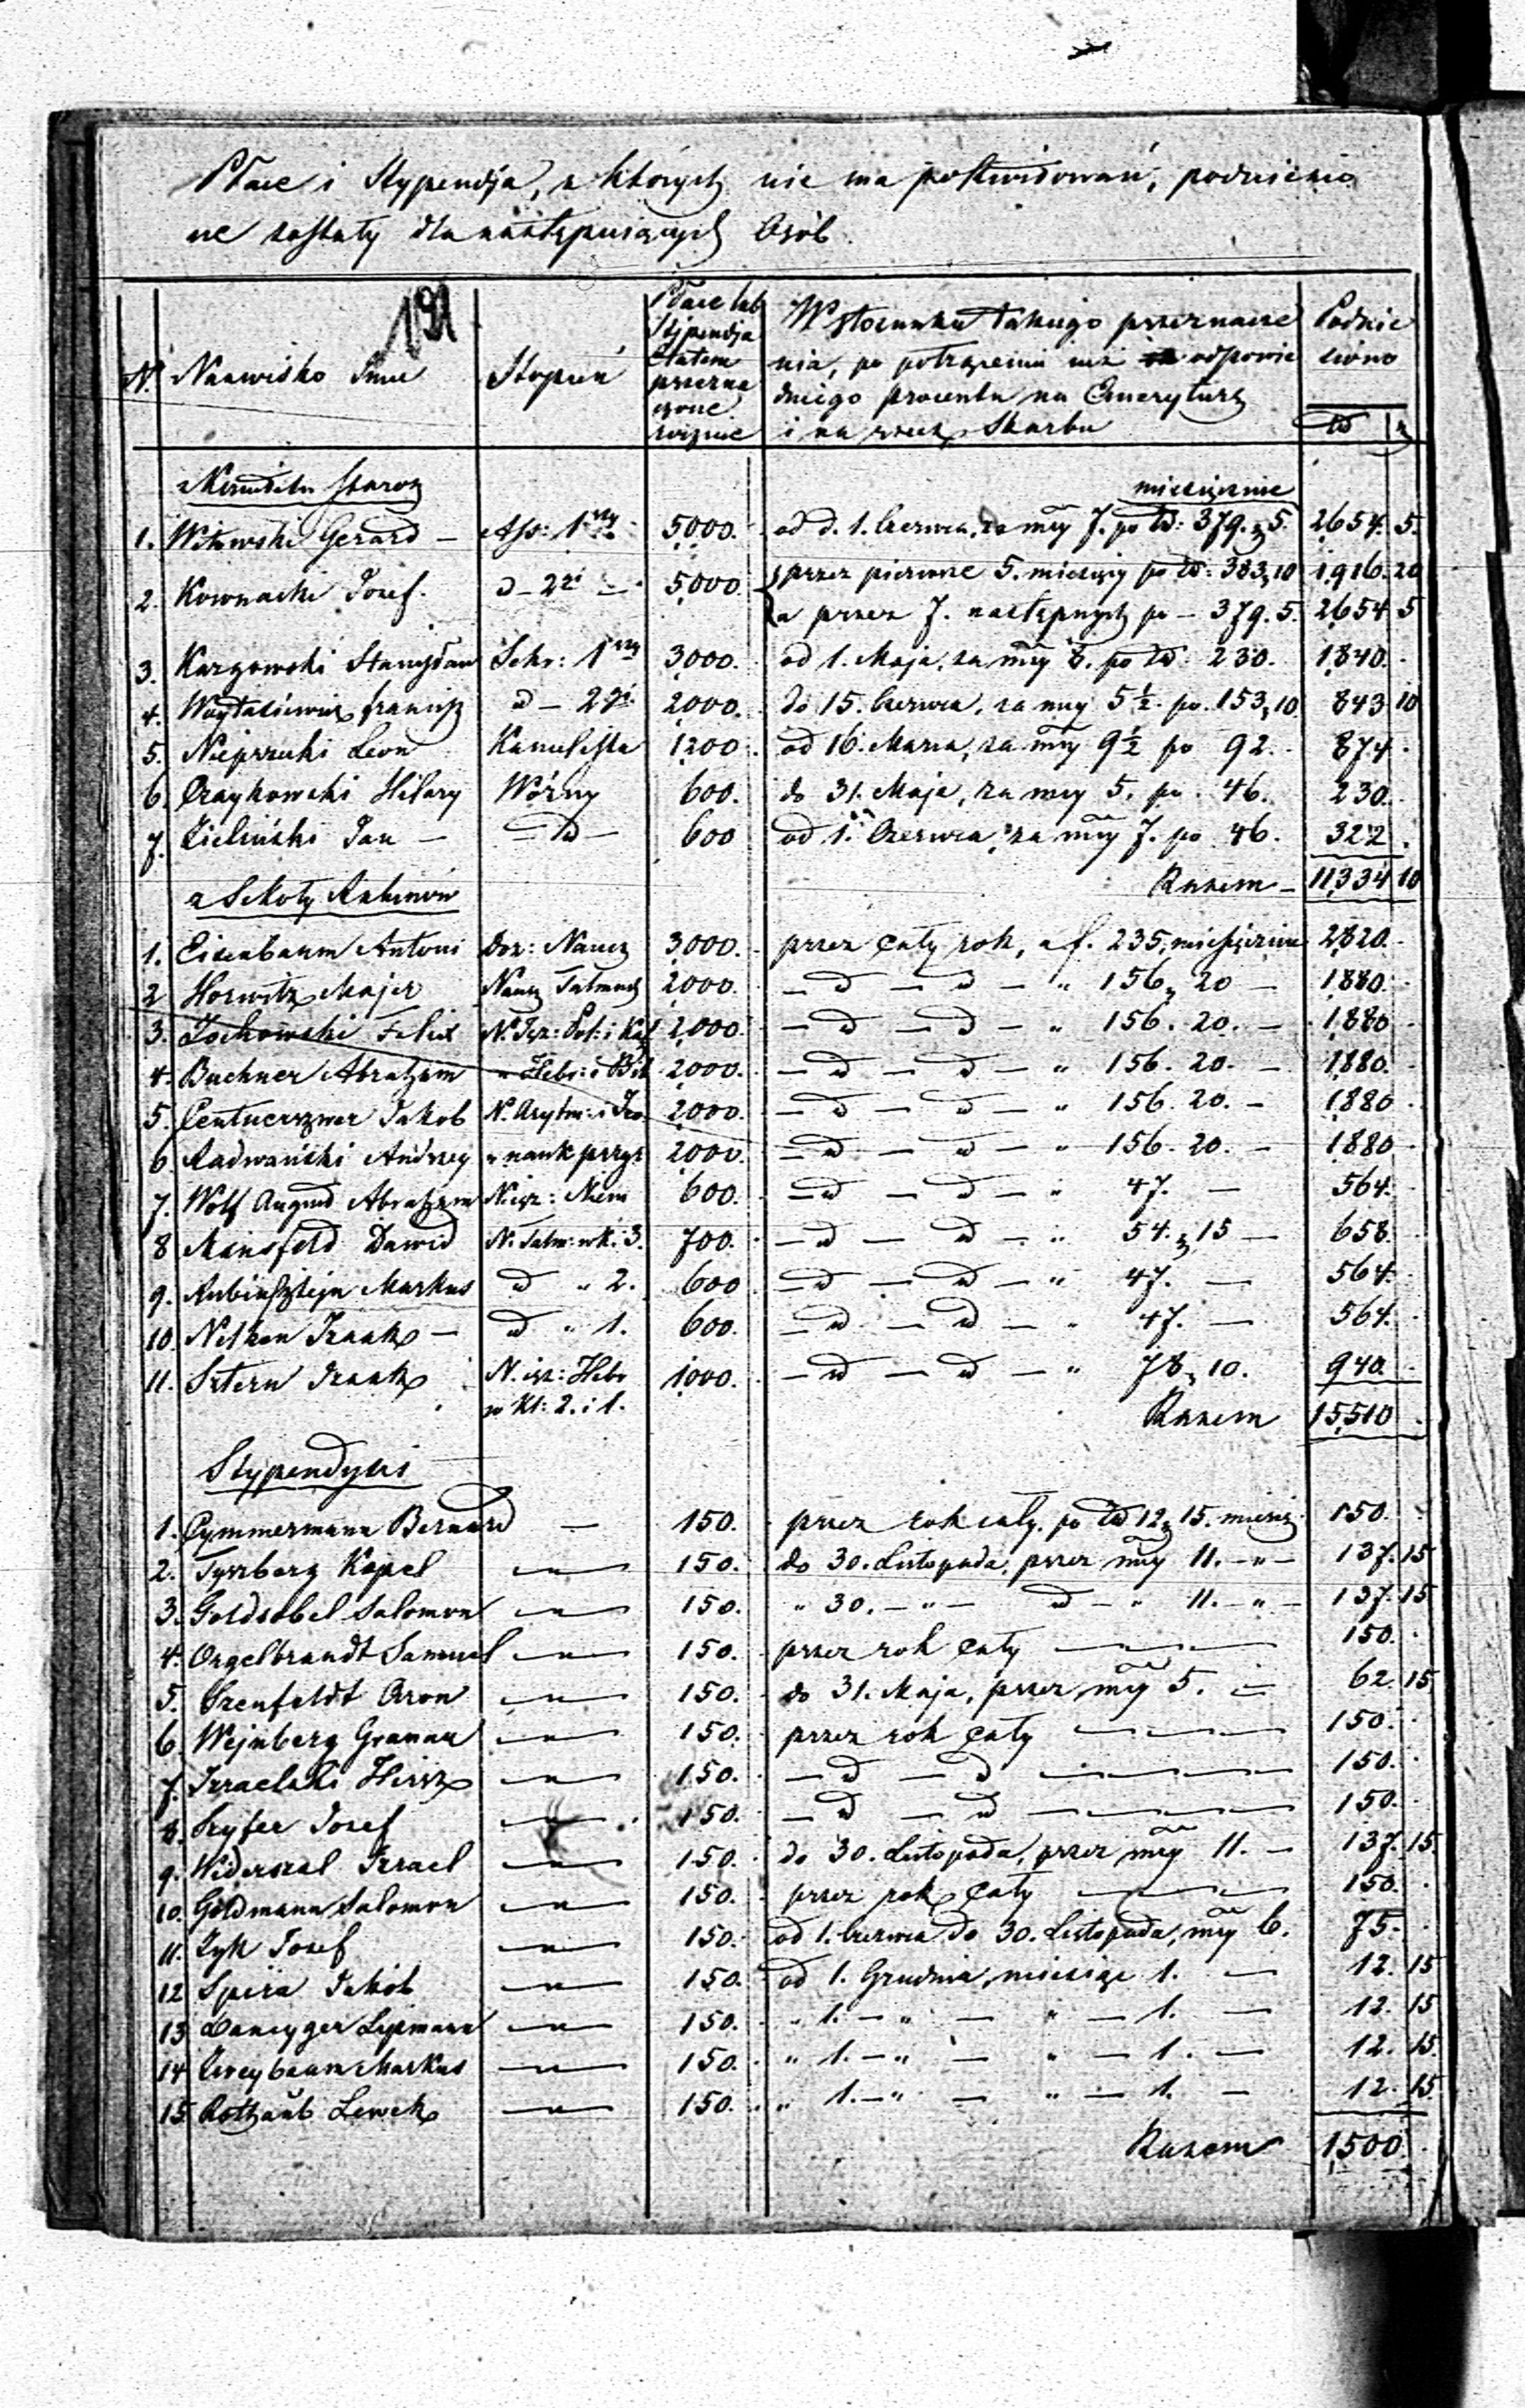 Płace i Stypendja, z których nie ma pokwidowań, podniesio
ne zostały dla następuiących Osób.
191
N. Nazwisko Imie Stopień Płace lub Stypendja Etatem przezna czone rocznie W stosunku takiego przeznacze nia, po potrąceniu już odpowie dniego procentu na Emeryturę i na rzecz Skarbu Podnie siono
z Komitetu Staroz miesięcznie
1. Witowski Gerard — Ass: 1szy 5,000. od d. 1. Czerwca, za mcy 7. po zł: 379. g 5. 2,654. 5.
2. Kownacki Josef. d – 2gi — 5,000. przez pierwsze 5. miesięcy po zł: 383, 10 1,916. 20
a przez 7. następnych po — 379. 5. 2654 5
3. Karzowski Stanisław Sekr: 1szy 3,000. od 1. Maja, za mcy 8. po zł: 230. 1,840.
4. Woytasiewicz Francisz d – 2gi 2,000. do 15. Czerwca, za mcy 5½. po. 153, 10. 843 10
5. Nieprzecki Leon Kancelista 1,200. od 16. Marca, za mcy 9½ po 92. 874.
6. Czaykowski Hilary Wózny 600. do 31. Maja, za mcy 5. po 46. 230.
7. Zieliński Jan — — d — 600 od 1. Czerwca, za mcy 7. po 46. 322.
z Szkoły Rabinów Razem — 11,334 10
1. Eisenbaum Antoni Doz: Naucz 3,000. przez cały rok, a f. 235, miesięcznie 2,820.
2 Horwitz Majer Naucz Talmud 2,000. — d — d — " 156, 20 — 1,880.
3. Jochowski Felix N. Jęz: Pol: i Kal 2,000. — d — d — " 156. 20. — 1,880
4. Buchner Abraham " Hebr: i Bib 2,000. — d — d — " 156. 20. — 1,880.
5. Centnerszwer Jakob N. Arytm: i Jeo 2,000. — d — d — " 156. 20. — 1,880
6. Radwański Andrzey " nauk przyr 2,000. — d — d — " 156. 20. — 1,880
7. Wolf August Abraham N. jęz: Niem 600. — d — d — " 47. — 564.
8 Mansfeld Dawid N. Talm: w K. 3. 700. — d — d — " 54. g 15 — 658.
9. Rubinsztejn Markus d " 2. 600 — d — d — " 47. — 564.
10. Nelken Izaak — d " 1. 600. — d — d — " 47. — 564.
11. Sztern Izaak N. jęz: Hebr 1,000. — d — d — " 78, 10. 940.
w Kl: 2. i 1. Razem 15,510
Stypendyści
1. Cymmermann Bernard — 150. przez rok cały. po zł 12, 15. miesię 150.
2. Tyszberg Kopel — " — 150. do 30. Listopada, przez mcy 11. — " — 137. 15
3. Goldsobel Salomon — " — 150. " 30. — " — d — " 11. — " — 137. 15
4. Orgelbrandt Samuel — " — 150. przez rok cały — 150.
5. Szenfeldt Aron — " — 150. do 31. Maja, przez mcy 5. — 62. 15
6. Wejnberg Granau — " — 150. przez rok cały — 150.
7. Izraelski Hersz — " — 150. — d — d — 150.
8. Szyfer Josef — " — 150. — d — d — 150.
9. Widerszal Izrael — " — 150. do 30. Listopada, przez mcy 11. — 137. 15
10. Goldmann Salomon — " — 150. przez rok cały — 150.
11. Zyk Josef — " — 150. od 1. Czerwca do 30. Listopada, mcy 6. 75.
12 Spira Jakób — " — 150. od 1. Grudnia, miesiąc 1. — 12. 15
13 Dancyger Lipmann — " — 150. " 1. — " — " — 1. — 12. 15
14 Cweybaum Markus — " — 150. " 1. — " — " — 1. — 12. 15.
15 Rothaub Lewek — " — 150. " 1. — " — " — 1. — 12. 15
Razem 1,500.